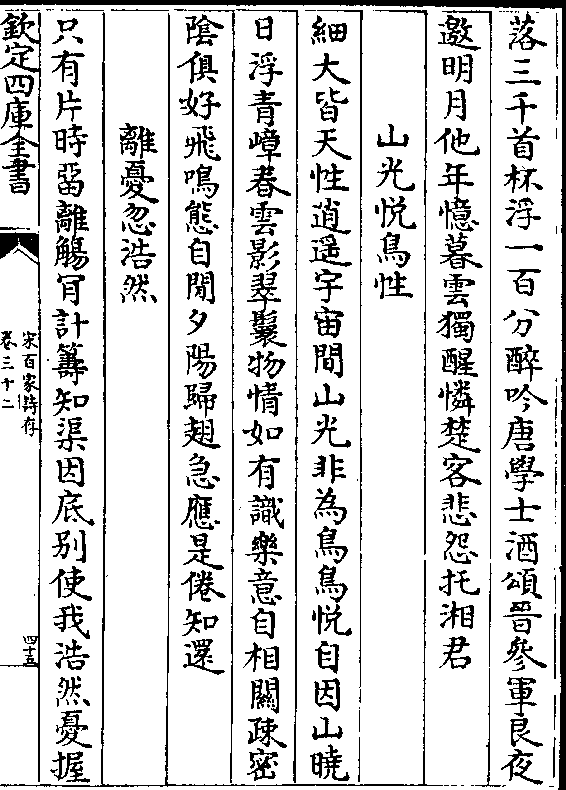 落三千首杯浮一百分醉吟唐學士酒頌晉參軍良夜
邀明月他年憶暮雲獨醒憐楚客悲怨托湘君
山光悦鳥性
細大皆天性逍遥宇宙間山光非為鳥鳥悦自因山曉
日浮青嶂春雲影翠鬟物情如有識樂意自相關疎密
陰俱好飛鳴態自閒夕陽歸翅急應是倦知還
離憂忽浩然
只有片時留離觴肎計籌知渠因底别使我浩然憂握
欽定四庫全書
宋百家詩存
卷三十二
四十五